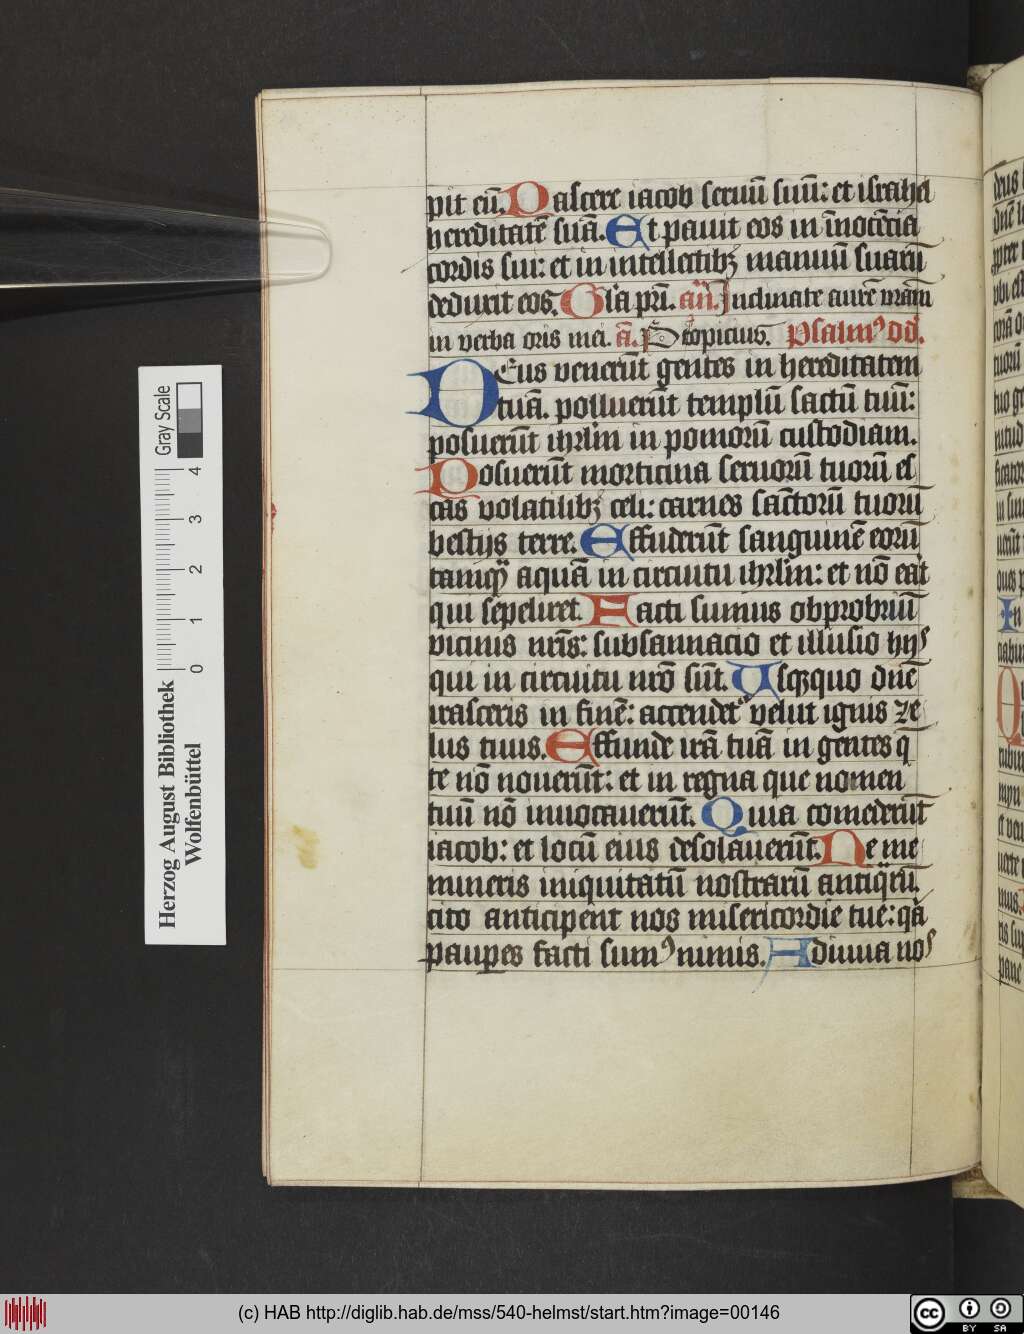 pit eū. Pascere iacob seruū suū: et israhel
hereditatē suā. Et pauit eos in īnocēcia
cordis sui: et in intellectibꝫ manuū suarū
deduxit eos. Gl'a pri. añ. Inclinate aurē vram
in verba oris mei. a. Propicius. Psalmꝰ dd.
Deus venerūt gentes in hereditatem
tuā. polluerūt templū sāctū tuū:
posuerūt ihrlm in pomorū custodiam.
Posuerūt morticina seruorū tuorū es
cas volatilibꝫ celi: carnes sāctorū tuorū
bestijs terre. Effuderūt sanguinē eorū
tamqꝫ aquā in circuitu ihrlm: et nō erāt
qui sepeliret. Facti sumus obprobriū
vicinis nr̄is: subsannacio et illusio hijs
qui in circuitu nr̄o sūt. Usqꝫquo dn̄e
irasceris in finē: accendet' velut ignis ze
lus tuus. Effunde irā tuā in gentes q̄
te nō nouerūt: et in regna que nomen
tuū nō inuocauerūt. Quia comederūt
iacob: et locū eius desolauerūt. Ne me
mineris iniquitatū nostrarū antiqͣrū.
cito anticipent nos misericordie tue: qͣ
pauꝑes facti sumꝰ nimis. Adiuua nos
deus
Gray Scale
0 1 2 3 4
Herzog August Bibliothek
Wolfenbüttel
(c) HAB http://diglib.hab.de/mss/540-helmst/start.htm?image=00146
cc BY SA